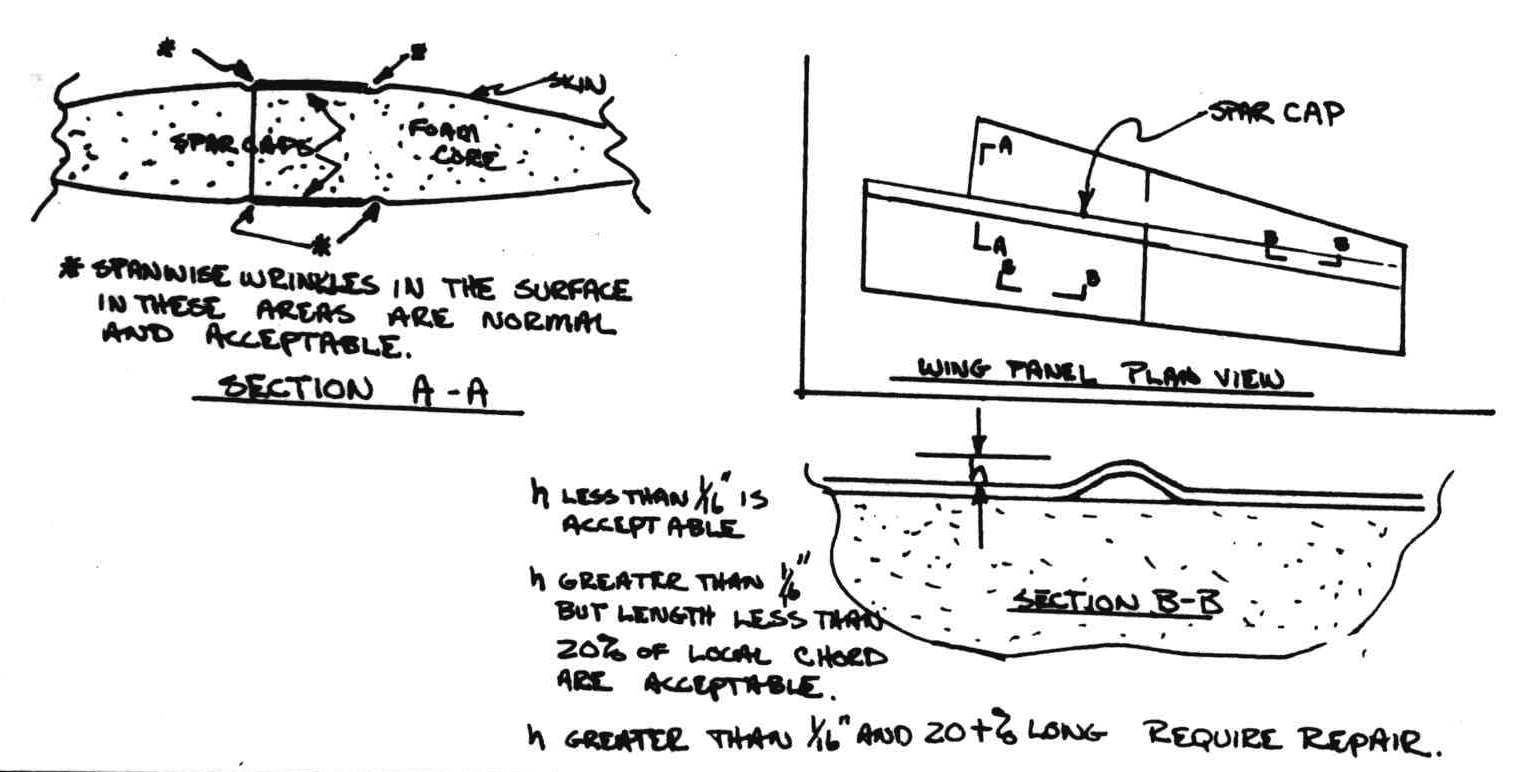 *
*
SKIN
SPAR CAPS
FOAM
CORE
*
* SPANWISE WRINKLES IN THE SURFACE
IN THESE AREAS ARE NORMAL
AND ACCEPTABLE.
SECTION A-A
SPAR CAP
A
A
B
B
B
B
WING PANEL PLAN VIEW
h
h LESS THAN 1/16" IS
ACCEPTABLE
h GREATER THAN 1/16"
BUT LENGTH LESS THAN
20% OF LOCAL CHORD
ARE ACCEPTABLE.
SECTION B-B
h GREATER THAN 1/16" AND 20+% LONG REQUIRE REPAIR.